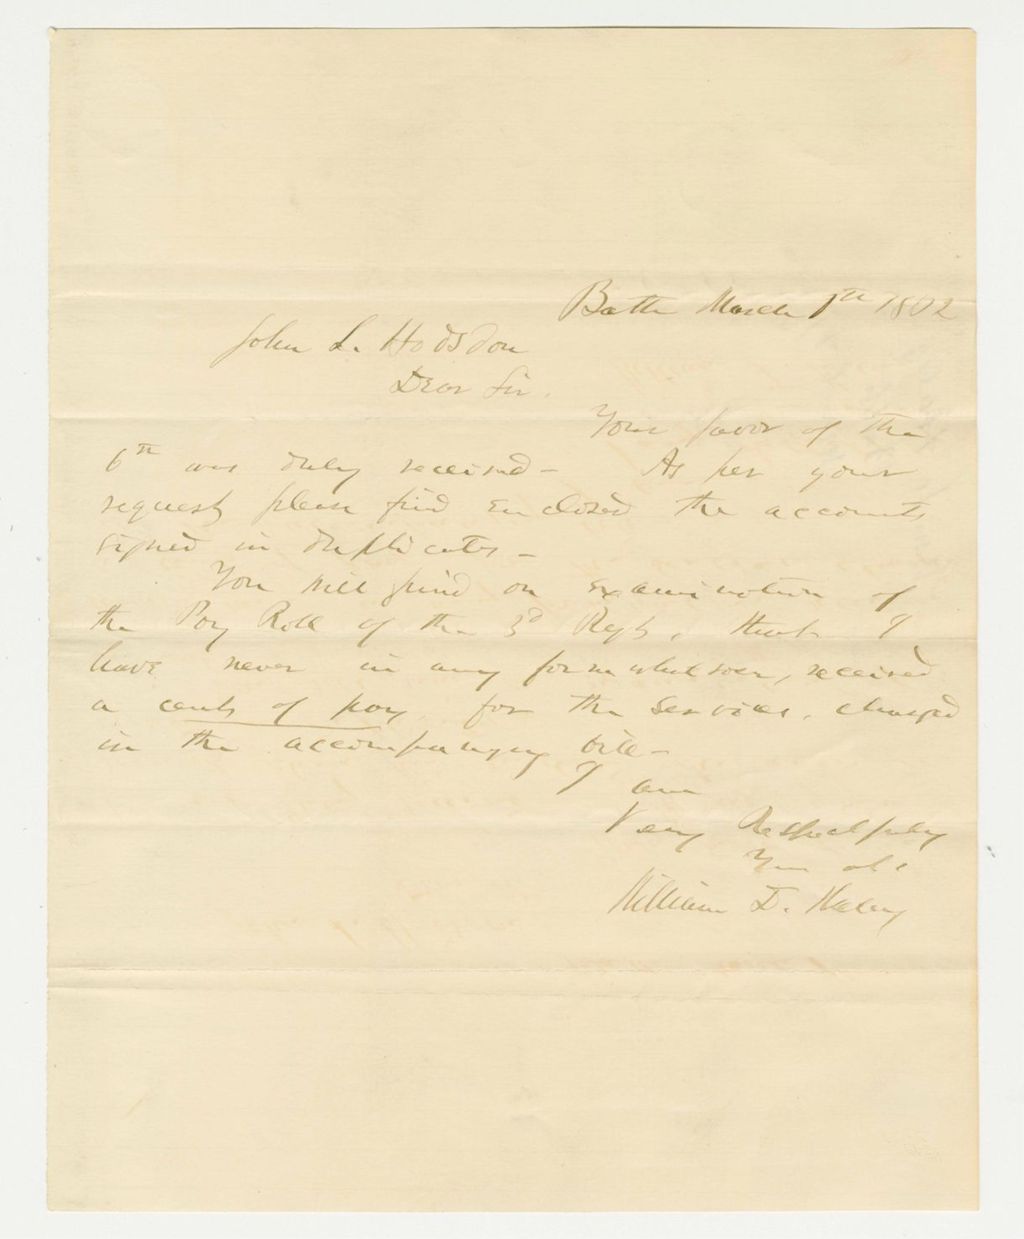 Bath March 1th 1862
John L. Hodsdon
Dear Sir.
Your favor of the
6th was duly received - As per your
request please find Enclosed the accounts
signed in duplicates -
You will find on Examination of
the Pay Roll of the 3d Regt, that I
have never in any form whatsoever, received
a cent of pay for the services, charged
in the accompanying bill -
I am
Very Respectfully
William D. Haley